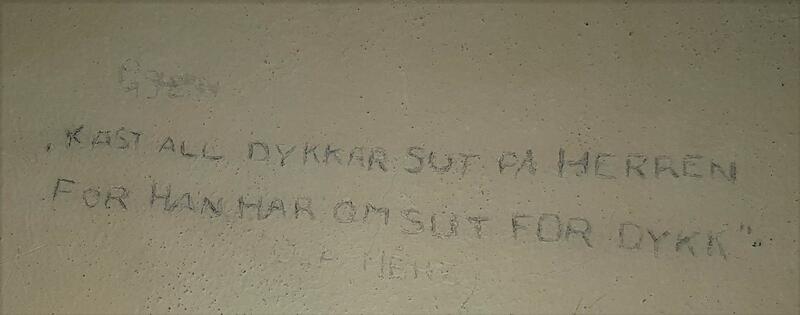 „KAST ALL DYKKAR SUT PÅ HERREN
FOR HAN HAR OMSUT FOR DYKK"